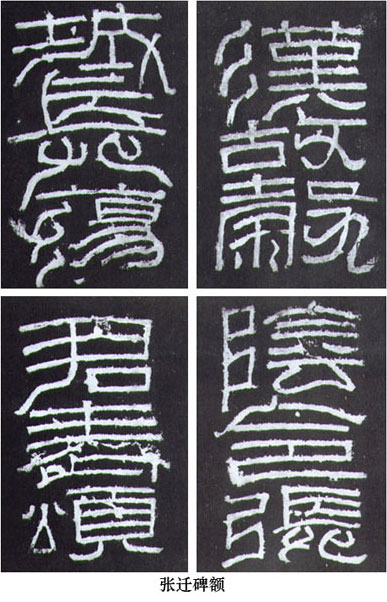 漢故穀
城長蕩
陰令張
君表頌
张迁碑额